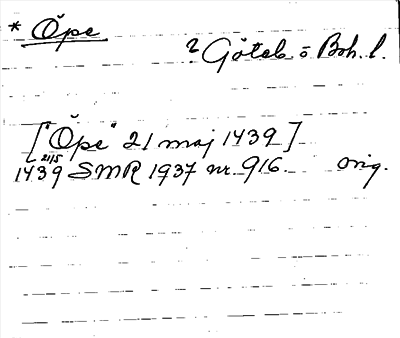 * Öpe
? Göteb o Boh. l.
["Öpe" 21 maj 1439]
1439 21/5 SMR 1937 nr. 916. orig.